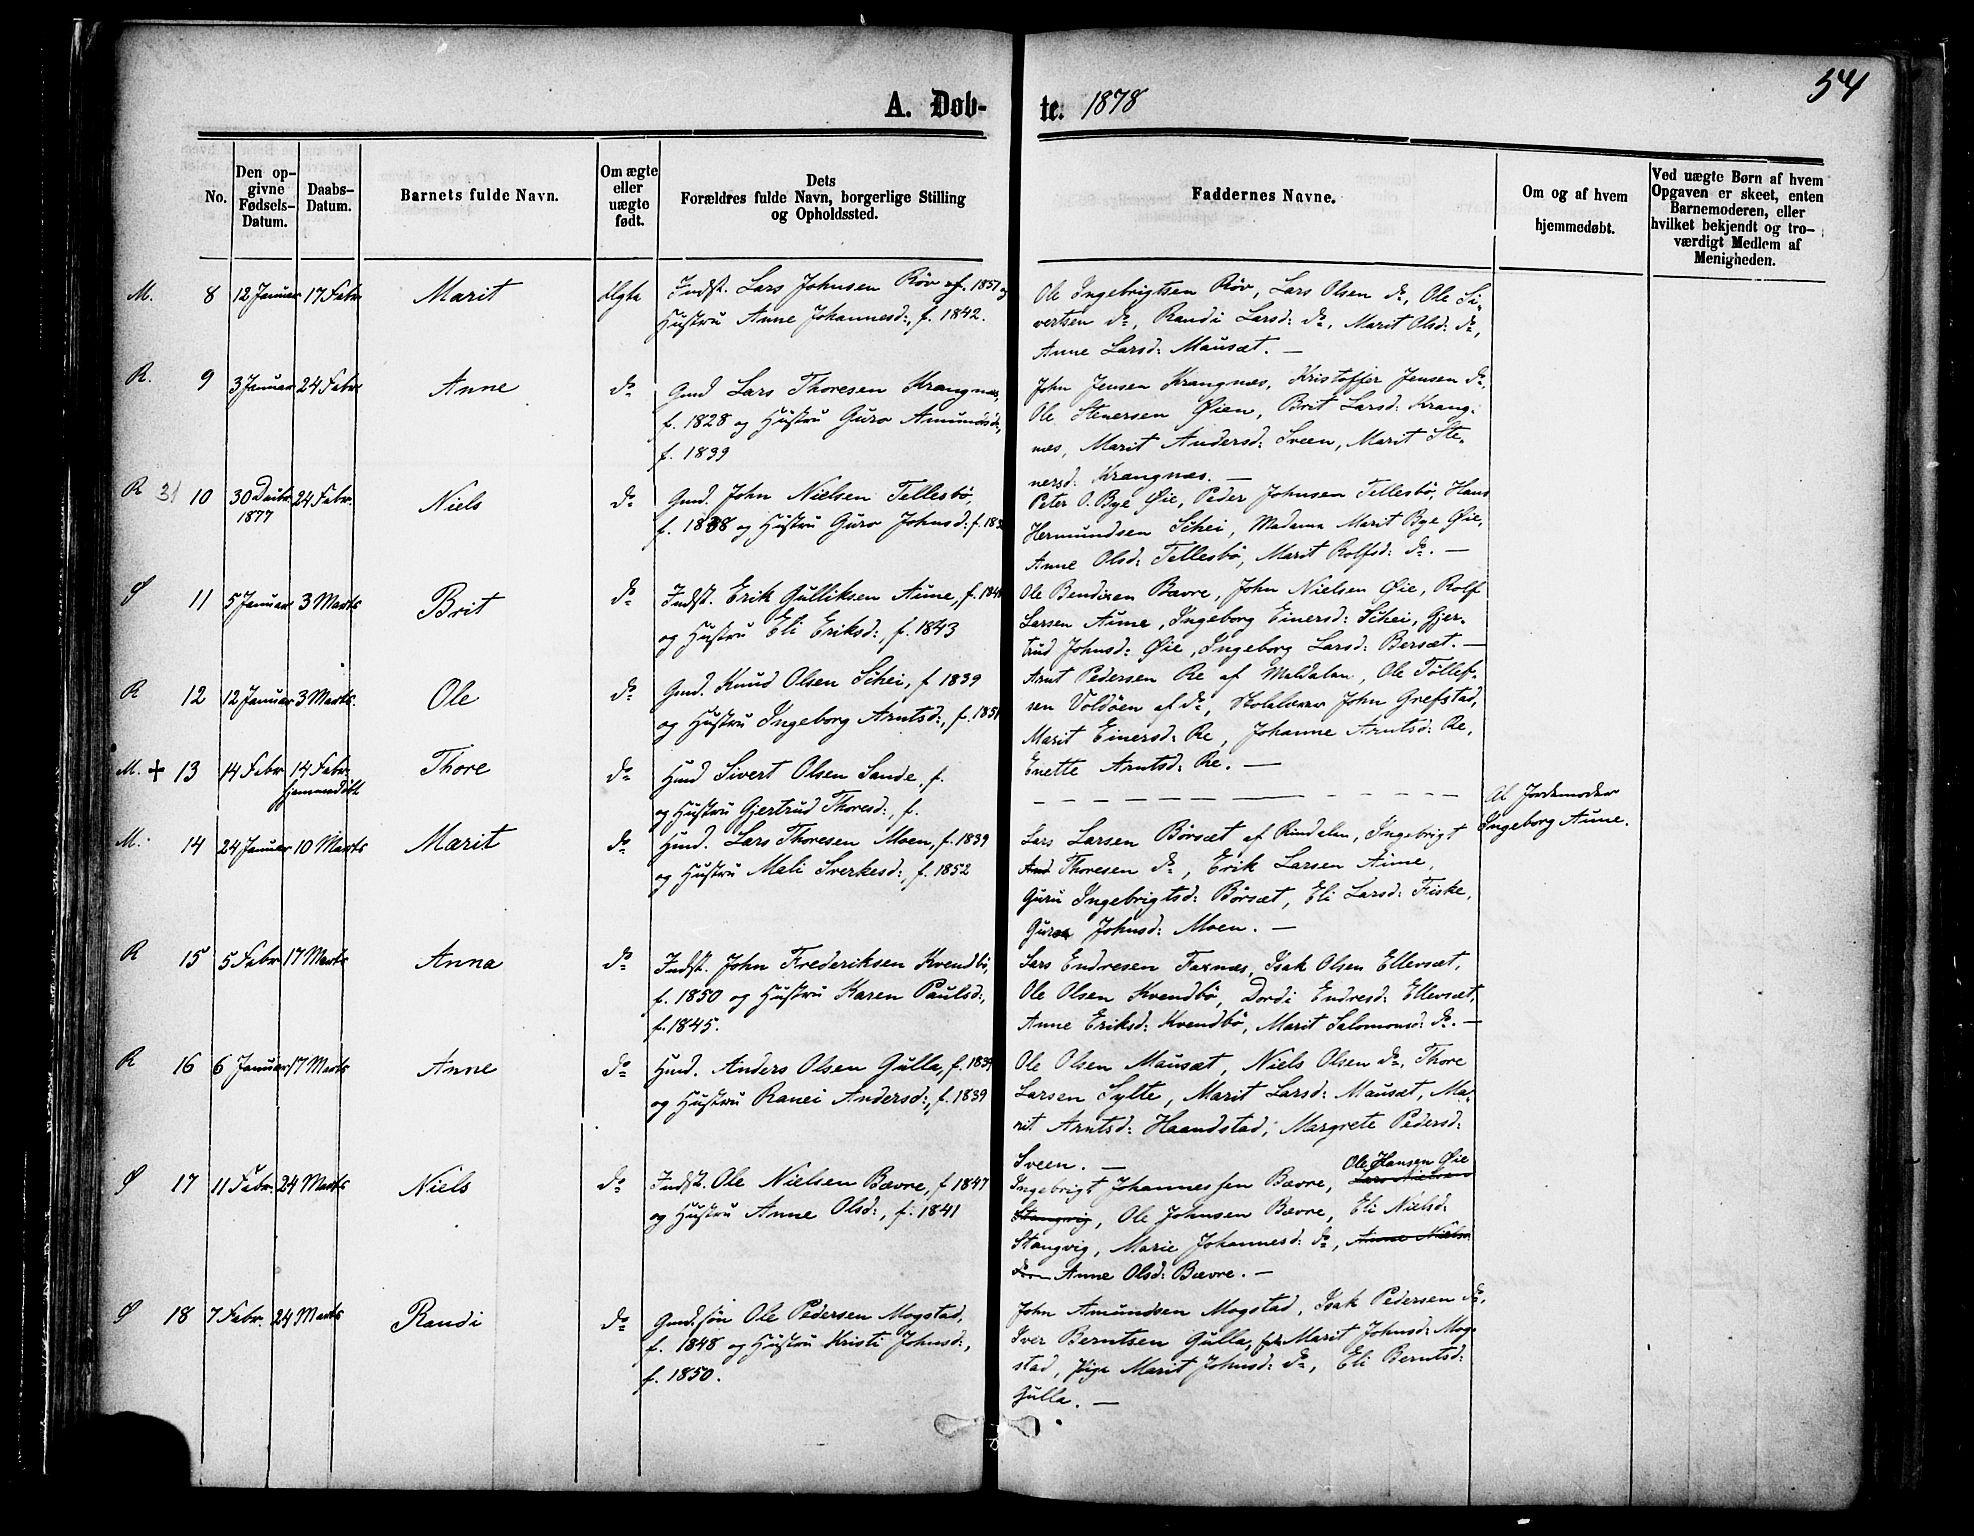 54
A. Døb-
te. 1878
No.
Den op-
givne
Fødsels-
Datum.
Daabs-
Datum.
Barnets fulde Navn.
Om ægte
eller
uægte
født.
Dets
Forældres fulde Navn, borgerlige Stilling
og Opholdssted.
Faddernes Navne.
Om og af hvem
hjemmedøbt.
Ved uægte Børn af hvem
Opgaven er skeet, enten
Barnemoderen, eller
hvilket bekjendt og tro-
værdigt Medlem af
Menigheden.
M. 8 12 Januar 17 Febr. Marit Ægte
Indst. Lars Johnsen Röv
Hustru Anne Johannesd:, f. 1842.
Ole Ingebrigtsen Röv, Lars Olsen do, Ole Si-
vertsen do, Randi Larsd: do, Marit Olsd: do,
Anne Larsd: Mausæt. —
R. 9 3 Januar 24 Febr. Anne do
Gmd Lars Thoresen Krangnæs,
f. 1828 og Hustru Guro Amundsd:,
f. 1839
John Jensen Krangnæs, Kristoffer Jensen do,
Ole Stenersen Øien, Brit Larsd: Krang-
næs, Marit Andersd: Sveen, Marit Ste-
nersd: Krangnæs. —
R 31 10 30 Decbr. 24 Febr. Niels do
1877
Gmd. John Nielsen Tellesbö,
f. 1838 og Hustru Guro Johnsd:
Peter O. Bye Øie, Peder Johnsen Tellesbö, Hans
Hermundsen Schei, Madama Marit Bye Øie,
Anne Olsd: Tellesbö, Marit Rolfsd: do. —
Ø 11 5 Januar 3 Marts Brit do
Indst. Erik Gulliksen Aune,
og Hustru Eli Eriksd:, f. 1843
Ole Bendixen Bævre, John Nielsen Øie, Rolf
Larsen Aune, Ingeborg Einersd: Schei, Gjer-
trud Johnsd: Øie, Ingeborg Larsd: Bersæt. —
R 12 12 Januar 3 Marts. Ole do
Gmd. Knud Olsen Schei, f 1839
og Hustru Ingeborg Arntsd:, f. 1851
Arnt Pedersen Re af Meldalen, Ole Tollef-
sen Voldöen af do, Skolelærer John Grefstad,
Marit Einersd: Re, Johanne Arntsd: Re,
Enette Arntsd: Re. —
M. + 13 14 Febr. 14 Febr. Thore do
hjemmedöbt
Hmd Sivert Olsen Sande, f.
og Hustru Gjertrud Thoresd:, f.
Af Jordemoder
Ingeborg Aune.
M. 14 24 Januar 10 Marts Marit do
Hmd. Lars Thoresen Moen, f. 1839
og Hustru Mali Sverkesd:, f. 1852
Lars Larsen Börsæt af Rindalen, Ingebrigt
And Thoresen do, Erik Larsen Aune,
Guru Ingebrigtsd: Börsæt, Eli Larsd: Fiske,
Johnsd: Moen. —
R 15 5 Febr. 17 Marts Anna do
Indst. John Frederiksen Kvendbö,
f. 1850 og Hustru Karen Paulsd:,
f. 1845.
Lars Endresen Foxnæs, Isak Olsen Ellevsæt,
Ole Olsen Kvendbö, Dordi Endresd: Ellevsæt,
Anne Eriksd: Kvendbö, Marit Salomonsd: do. —
R 16 6 Januar 17 Marts Anne do
Hmd. Anders Olsen Gulla, f. 1839
og Hustru Ranei Andersd:, f. 1839
Ole Olsen Mausæt, Niels Olsen do, Thore
Larsen Sylte, Marit Larsd: Mausæt, Ma-
rit Arntsd: Haandstad, Margrete Pedersd:
Sveen. —
Ø 17 11 Febr. 24 Marts Niels do
Indst. Ole Nielsen Bævre, f 1847
og Hustru Anne Olsd:, f. 1841
Ole Hansen Øie
Ingebrigt Johannessen Bævre, Lars Nielsen
Stangvig, Ole Johnsen Bævre, Eli Nielsd:
Stangvig, Marie Johannesd: do, Anne Nielsd:
Anne Olsd: Bævre. —
Ø 18 7 Febr. 24 Marts Randi do
Gmd.sön Ole Pedersen Mogstad,
f. 1848 og Hustru Kristi Johnsd:,
f. 1850.
John Amundsen Mogstad, Isak Pedersen do,
Iver Berntsen Gulla, Marit Johnsd: Mog-
stad, Pige Marit Johnsd: do, Eli Berntsd:
Gulla. —